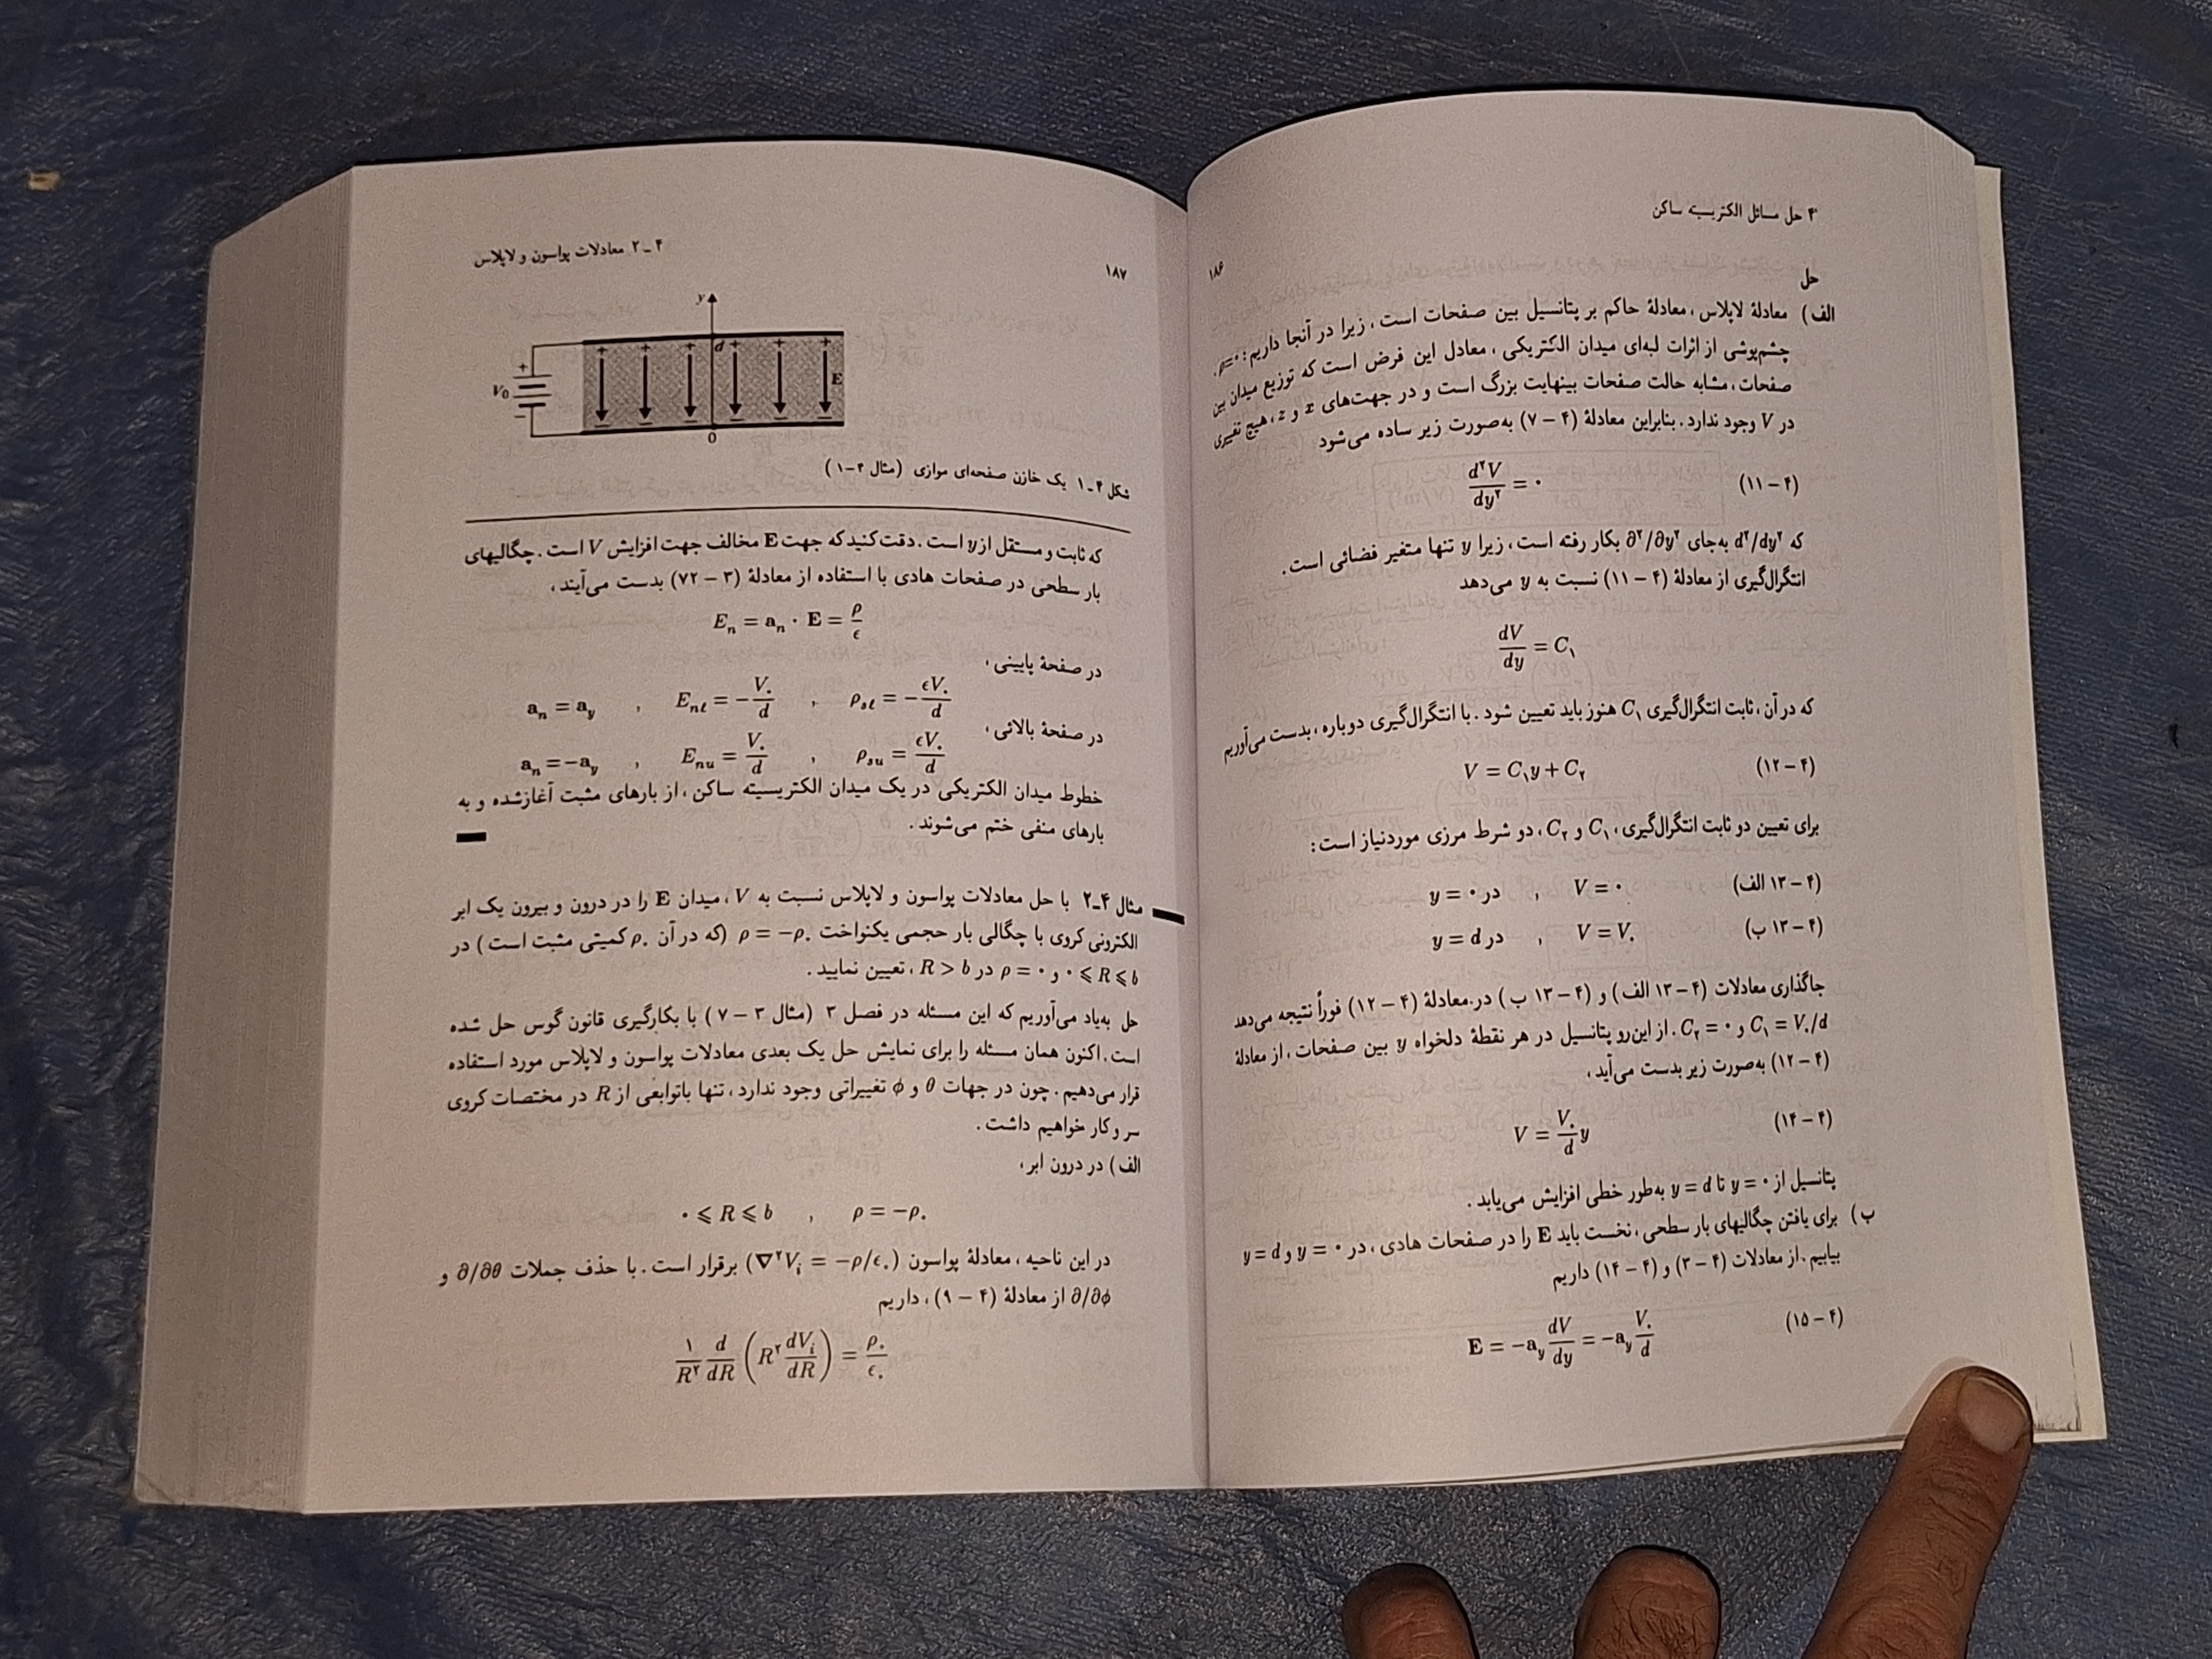 ۴ حل مسائل الکتریسیته ساکن
۱۸۶
حل
الف) معادلهٔ لاپلاس، معادلهٔ حاکم بر پتانسیل بین صفحات است، زیرا در آنجا داریم: ρ=۰.
چشم‌پوشی از اثرات لبه‌ای میدان الکتریکی، معادل این فرض است که توزیع میدان بین
صفحات، مشابه حالت صفحات بینهایت بزرگ است و در جهت‌های x و z، هیچ تغییری
در V وجود ندارد. بنابراین معادلهٔ (۴ – ۷) به‌صورت زیر ساده می‌شود
(۴ – ۱۱) d²V/dy² = ۰
که d²/dy² به‌جای ∂²/∂y² بکار رفته است، زیرا y تنها متغیر فضائی است.
انتگرال‌گیری از معادلهٔ (۴ – ۱۱) نسبت به y می‌دهد
dV/dy = C₁
که در آن، ثابت انتگرال‌گیری C₁ هنوز باید تعیین شود. با انتگرال‌گیری دوباره، بدست می‌آوریم
(۴ – ۱۲) V = C₁y + C₂
برای تعیین دو ثابت انتگرال‌گیری، C₁ و C₂، دو شرط مرزی موردنیاز است:
(۴ – ۱۳ الف) V = ۰ , در y = ۰
(۴ – ۱۳ ب) V = V₀ , در y = d
جاگذاری معادلات (۴ – ۱۳ الف) و (۴ – ۱۳ ب) در معادلهٔ (۴ – ۱۲) فوراً نتیجه می‌دهد
C₁ = V₀/d و C₂ = ۰. از این‌رو پتانسیل در هر نقطهٔ دلخواه y بین صفحات، از معادلهٔ
(۴ – ۱۲) به‌صورت زیر بدست می‌آید،
(۴ – ۱۴) V = V₀/d y
پتانسیل از y = ۰ تا y = d به‌طور خطی افزایش می‌یابد.
ب) برای یافتن چگالیهای بار سطحی، نخست باید E را در صفحات هادی، در y = ۰ و y = d
بیابیم. از معادلات (۴ – ۳) و (۴ – ۱۴) داریم
(۴ – ۱۵) E = −a_y dV/dy = −a_y V₀/d
۴ـ۲ معادلات پواسون و لاپلاس
۱۸۷
y
d
E
V₀
+
−
0
شکل ۴ـ۱ یک خازن صفحه‌ای موازی (مثال ۴–۱)
که ثابت و مستقل از y است. دقت کنید که جهت E مخالف جهت افزایش V است. چگالیهای
بار سطحی در صفحات هادی با استفاده از معادلهٔ (۳ – ۷۲) بدست می‌آیند،
E_n = a_n · E = ρ/ϵ
در صفحهٔ پایینی،
a_n = a_y , E_nℓ = −V₀/d , ρ_sℓ = −ϵV₀/d
در صفحهٔ بالائی،
a_n = −a_y , E_nu = V₀/d , ρ_su = ϵV₀/d
خطوط میدان الکتریکی در یک میدان الکتریسیته ساکن، از بارهای مثبت آغازشده و به
بارهای منفی ختم می‌شوند.
مثال ۴ـ۲ با حل معادلات پواسون و لاپلاس نسبت به V، میدان E را در درون و بیرون یک ابر
الکترونی کروی با چگالی بار حجمی یکنواخت ρ = −ρ₀ (که در آن ρ₀ کمیتی مثبت است) در
۰ ⩽ R ⩽ b و ρ = ۰ در R > b، تعیین نمایید.
حل به‌یاد می‌آوریم که این مسئله در فصل ۳ (مثال ۳ – ۷) با بکارگیری قانون گوس حل شده
است. اکنون همان مسئله را برای نمایش حل یک بعدی معادلات پواسون و لاپلاس مورد استفاده
قرار می‌دهیم. چون در جهات θ و ϕ تغییراتی وجود ندارد، تنها باتوابعی از R در مختصات کروی
سر و کار خواهیم داشت.
الف) در درون ابر،
۰ ⩽ R ⩽ b , ρ = −ρ₀
در این ناحیه، معادلهٔ پواسون (∇²V_i = −ρ/ϵ₀) برقرار است. با حذف جملات ∂/∂θ و
∂/∂ϕ از معادلهٔ (۴ – ۹)، داریم
۱/R² d/dR (R² dV_i/dR) = ρ₀/ϵ₀